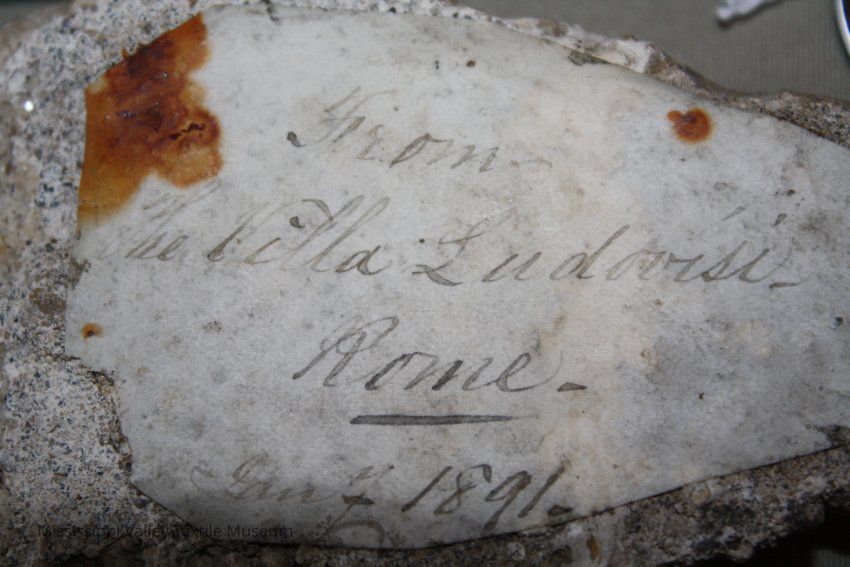 From
The Villa Ludovisi
Rome.
Jany 1891.
Mississippi Valley Textile Museum